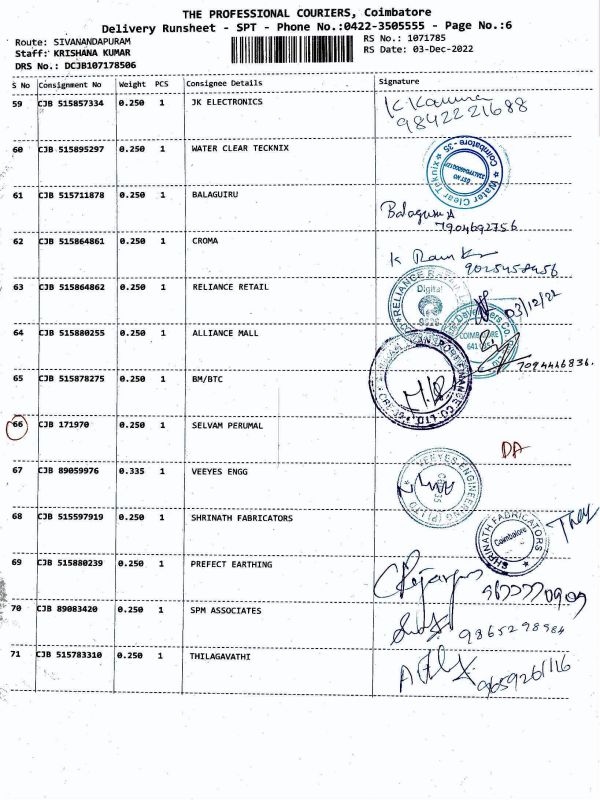 THE PROFESSIONAL COURIERS, Coimbatore
Delivery Runsheet - SPT - Phone No.:0422-3505555 - Page No.:6
Route: SIVANANDAPURAM
RS No.: 1071785
Staff: KRISHANA KUMAR
RS Date: 03-Dec-2022
DRS No.: DCJB107178506
S No Consignment No Weight PCS Consignee Details Signature
59 CJB 515857334 0.250 1 JK ELECTRONICS
9842221688
60 CJB 515895297 0.250 1 WATER CLEAR TECKNIX
Water Clear Teknix Coimbatore - 35
61 CJB 515711878 0.250 1 BALAGUIRU
7904692756
62 CJB 515864861 0.250 1 CROMA
9025458456
63 CJB 515864862 0.250 1 RELIANCE RETAIL
RELIANCE
Digital
03/12/22
64 CJB 515880255 0.250 1 ALLIANCE MALL
COIMBATORE
641
7094446836.
65 CJB 515878275 0.250 1 BM/BTC
66 CJB 171970 0.250 1 SELVAM PERUMAL
DA
67 CJB 89059976 0.335 1 VEEYES ENGG
VEEYES ENGINEERING (P) LTD
68 CJB 515597919 0.250 1 SHRINATH FABRICATORS
SHRINATH FABRICATORS
Coimbatore
69 CJB 515880239 0.250 1 PREFECT EARTHING
70 CJB 89083420 0.250 1 SPM ASSOCIATES
9865298984
71 CJB 515783310 0.250 1 THILAGAVATHI
9659261116